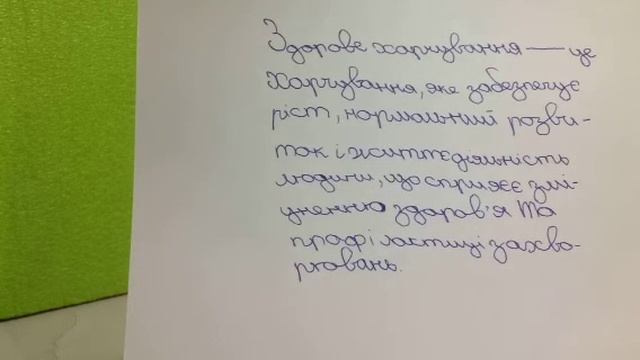 Здорове харчування — це
харчування, яке забезпечує
ріст, нормальний розви-
ток і життєдіяльність
людини, що сприяє змі-
цненню здоров'я та
профілактиці захво-
рювань.